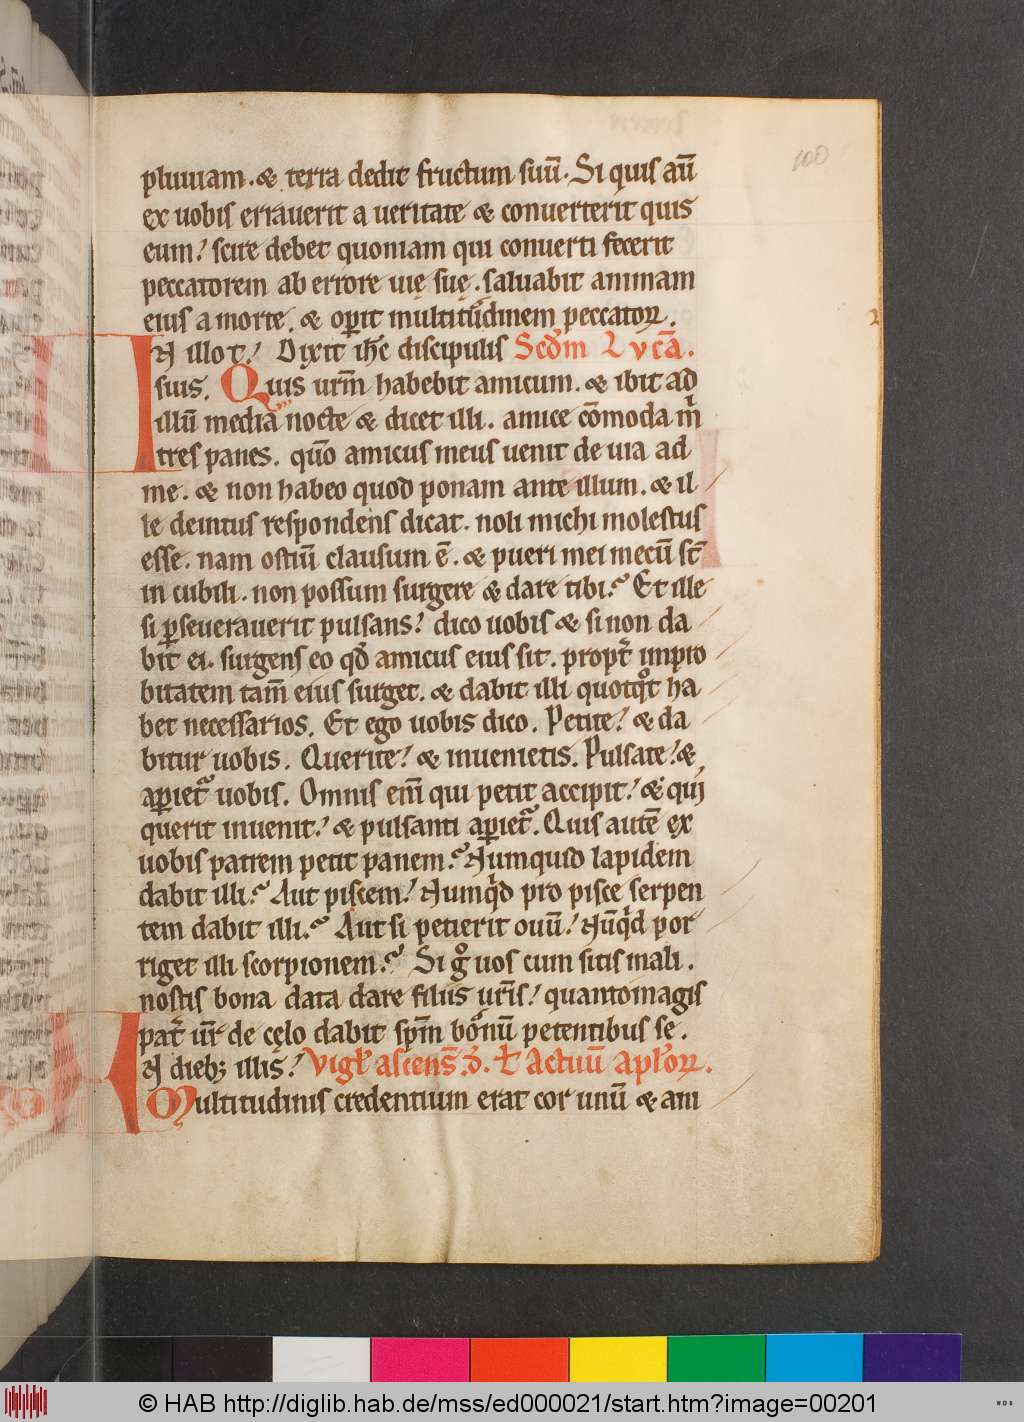 100
pluuiam. & terra dedit fructum suū. Si quis aūt
ex uobis errauerit a ueritate & conuerterit quis
eum! scire debet quoniam qui conuerti fecerit
peccatorem ab errore uię suę. saluabit animam
eius a morte. & opit multitudinem peccatoꝝ.
IN illo t! Dixit ihc discipulis Scdm Lvcā.
suis. Quis urm̄ habebit amicum. & ibit ad
illū media nocte & dicet illi. amice cōmoda m̄
tres panes. quō amicus meus uenit de uia ad
me. & non habeo quod ponam ante illum. & il
le deintus respondens dicat. noli michi molestus
esse. nam ostiū clausum ē. & pueri mei mecū st̄
in cubili. non possum surgere & dare tibi. Et ille
si ꝑseuerauerit pulsans! dico uobis & si non da
bit ei. surgens eo qd̄ amicus eius sit. propt̄ impro
bitatem tam̄ eius surget. & dabit illi quotqͦt ha
bet necessarios. Et ego uobis dico. Petite! & da
bitur uobis. Querite! & inuenietis. Pulsate! &
aꝑiet̄ uobis. Omnis eni̅ qui petit accipit! & qui
querit inuenit! & pulsanti aꝑiet̄. Quis autē ex
uobis patrem petit panem. Numquid lapidem
dabit illi. Aut piscem! Numqd pro pisce serpen
tem dabit illi. Aut si petierit ouū! Nūqd por
riget illi scorpionem. Si gͦ uos cum sitis mali.
nostis bona data dare filiis ur̄is! quantomagis
pat̄ ur̄ de cęlo dabit spm̄ bonū petentibus se.
IN diebꝫ illis! Vigł ascens̄. d. ł Actuū apłoꝝ.
Multitudinis credentium erat cor unū & ani
© HAB http://diglib.hab.de/mss/ed000021/start.htm?image=00201